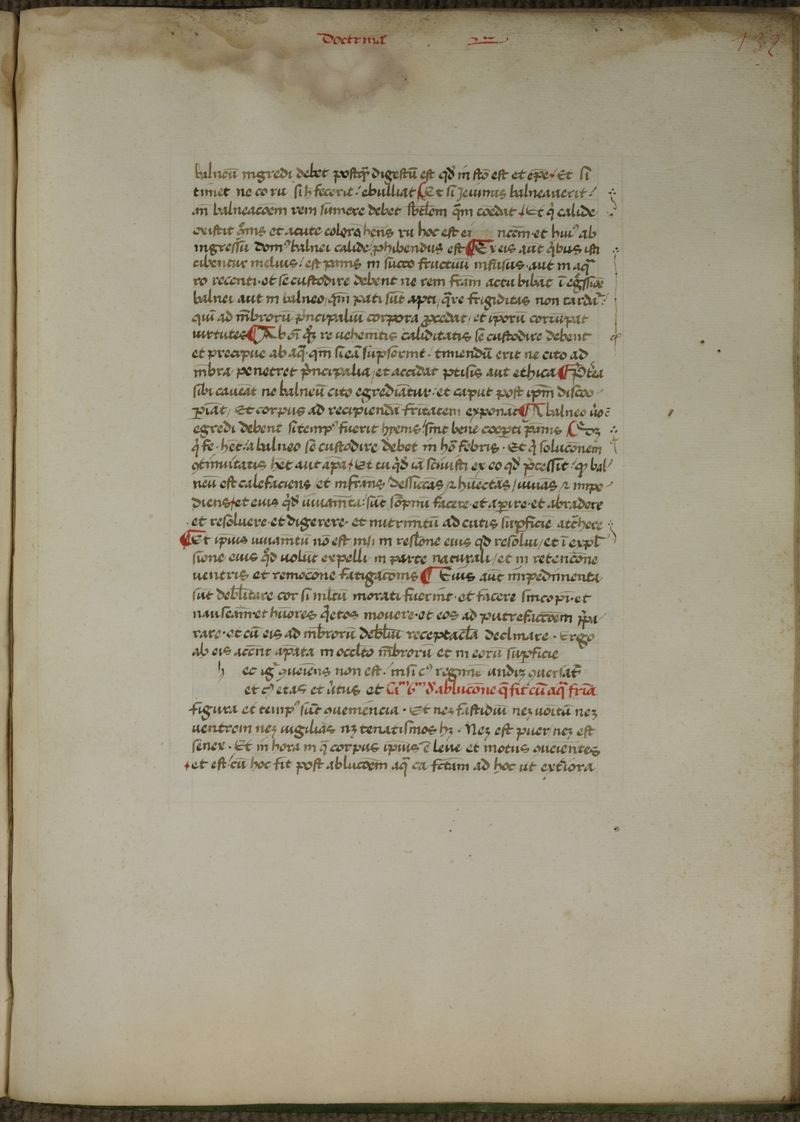 Doctrina
132
balneū ingredi debet postq̄ digestū est qđ in sto est et epe. Et si
timet ne co ru si h̵ fecerit: ebulliat Et si Jeiunus balneauerit:
an balneacoem rem sumere debet sbtlem q̄m coedat. Et q̄ calide
existit oms et acute colera hens ru hoc est ei ncm et hui9 ab
ingressu dom9 balnei calide ꝓhibendus est Ex eis aut q̄bus isti
cibentur melius: est panis in succo fructuū infusus. aut in aq̄
ro recenti. et se custodire debent ne rem fr̄am actu bibāt ī eg̃ssiōe
balnei aut in balneo. q̄m pati sūt apti. q̄re frigiditas non tardat
quī ad mbrorū pncipaliū corpora ꝓcedat. et iporu corrūpat
uirtutes Ab oī q̄ȝ re uehemētis caliditatis se custodire debent
et precipue ab aq̄. qm si eā sūpserint. timendū erit ne cito ad
mbra penetret pncipalia. et accidat ptisis aut ethica Pt̄ea
sibi caueāt ne balneū cito egrediātur. et caput post ipm disco͞o
piāt. Et corpus ad recipiendā fritatem exponāt A balneo uo͞e
egredi debent si temp9 fuerit hyemis sint bene coopti pānis Eoȝ
q̄ fe. het. a balneo se custodire debet in ho͞ febris. Et q̄ soluconem
9tinuitatis het aut apa. Et tu qđ iā sciuisti ex eo qđ p̄cessūt. q̄ bal
neū est calefaciens et infr̄ans. desiccās ⁊ huectās. iuuās ⁊ impe
diens. et eius qđ iuuamta sūt sōpnū facere. et apire. et abradere
et resoluere. et digerere. et nutrimtū ad cutis sūpficie at̄here
Et ipius iuuamtū no͞ est nisi in resl̄one eius qđ resolui. et ī expl̄
sione eius qđ uolūt expelli in parte naturali. et in retencōne
uentris et remocōne fatigacōnis Eius aut impedimenta
sūt debl̄itare cor si mltū morati fuerint. et facere sincopī. et
nauseam. et hūores q̄etos mouere. et eos ad putrefactōem p̄pa
rare. et cū eis ad mbrorū debl̄iū receptacl̄a declinare. Ergo
ab eis accnt apata in occlto mbrorū et in eorū sūpficie
h ec ig̃ 9ueniens non est. nisi
et etas et Cm̄ 6m̄ d' ablucōne q̄ fit cū aq̄ fr̄ia
figura et temp9 sūt 9uemencia. Et neȝ fastidiū neȝ uoītū neȝ
uentrem neȝ uigilias nȝ tenatismos hȝ. Neȝ est puer neȝ est
senex. Et in hora in q̄ corpus ipius ē leue et motus 9uenientes
et est. cū hoc fit post ablucōem aq̄ ca fctam ad hoc ut exteriora